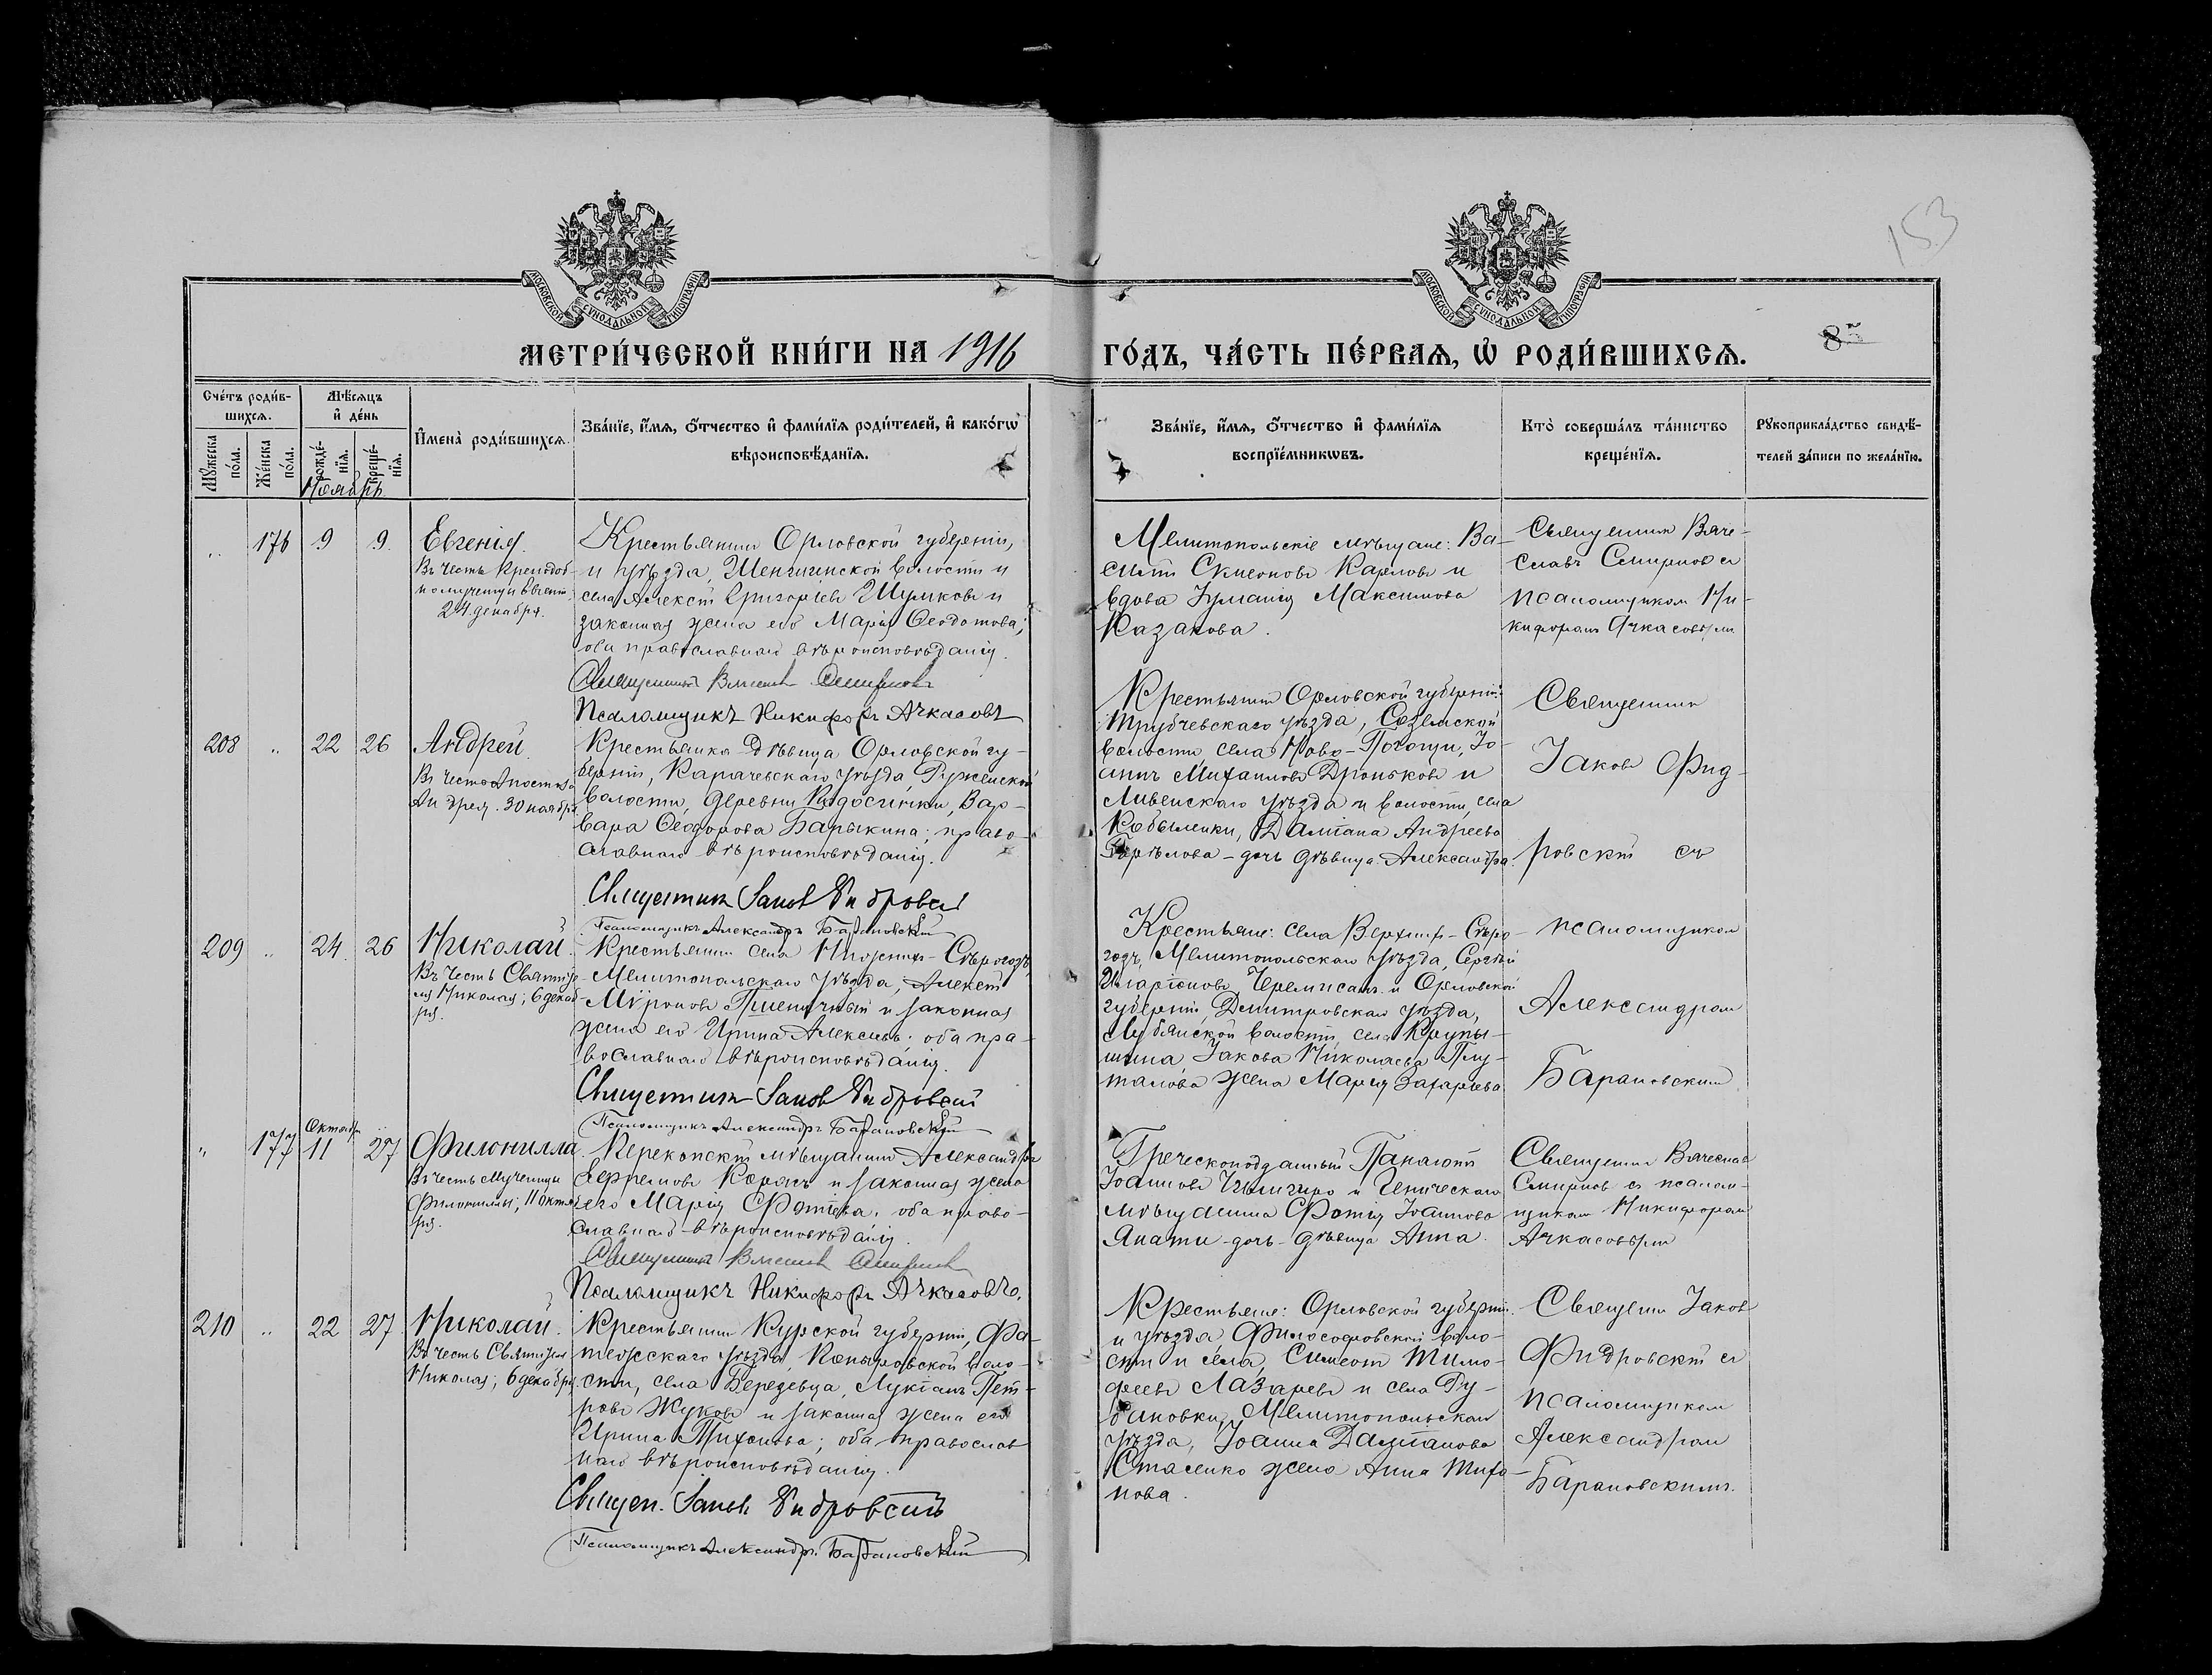 153
МОСКОВСКОЙ СУНОДАЛЬНОЙ ТИПОГРАФІИ
МОСКОВСКОЙ СУНОДАЛЬНОЙ ТИПОГРАФІИ
МЕТРИ́ЧЕСКОЙ КНИ́ГИ НА 1916
ГО́ДЪ, ЧА́СТЬ ПЕ́РВАѦ, Ѡ҆ РОДИ́ВШИХСѦ.
Сче́тъ роди́в-
шихсѧ.
Мꙋ́жеска по́ла.
Же́нска по́ла.
Мѣ́сѧцъ
и҆ де́нь
рожде́-
нїѧ.
креще́-
нїѧ.
Ноябрь
И҆мена̀ роди́вшихсѧ.
Зва́нїе, и҆́мѧ, ѻ҆́тчество и҆ фами́лїѧ роди́телей, и҆ како́гѡ
вѣроисповѣ́данїѧ.
Зва́нїе, и҆́мѧ, ѻ҆́тчество и҆ фами́лїѧ
воспрїе́мникѡвъ.
Кто̀ соверша́лъ та́инство
креще́нїѧ.
Рꙋкоприкла́дство свидѣ́-
телей за́писи по жела́нїю.
176 9 9
Евгенія.
24 декабря.
Крестьянин Орловской губерніи,
и уѣзда, волости и
села Алексѣй Григорьев Шумков и
законная жена его Марія Ѳеодотова;
оба православнаго вѣроисповѣданія.
Священник Вячеслав Смирнов
Псаломщикъ Никифоръ Ачкасовъ
Мелитопольскіе мѣщане: Ва-
силій Симеонов Карлов и
вдова Іуліанія Максимова
Казакова.
Священник Вяче-
слав Смирнов съ
псаломщиком Ни-
кифором Ачкасовым
208 22 26
Андрей
Въ честь Апостола
Андрея. 30 ноября
Крестьянка дѣвица Орловской гу-
берніи, Карачевскаго уѣзда, Руженской
волости, деревни Вар-
вара Ѳеодорова Барыкина; право-
славнаго вѣроисповѣданія.
Священник Іаков Фидровскій
Псаломщикъ Александръ Барановскій
Крестьянин Орловской губерніи
Трубчевскаго уѣзда,
волости села Ново-Погощи, Іо-
анн Михаилов Дроньков и
Ливенскаго уѣзда и волости, села
Кобыленки, Даміана Андреева
Горѣлова - дочь дѣвица Александра.
Священник
Іаков Фид-
ровскій съ
псаломщиком
Александром
Барановским
209 24 26
Николай.
Въ честь Святите-
ля Николая; 6 декаб-
ря.
Крестьянин села Нижних-Сѣрогозъ,
Мелитопольскаго уѣзда, Алексѣй
Мѵронов Пшеничный и законная
жена его Ирина Алексѣева; оба пра-
вославнаго вѣроисповѣданія.
Священник Іаков Фидровскій
Псаломщикъ Александръ Барановскій
Крестьяне: села Верхних-Сѣро-
гозъ, Мелитопольскаго уѣзда, Сергѣй
Иларіонов и Орловской
губерніи, Дмитровскаго уѣзда,
Лубянской волости, села Крупы-
шина, Іакова Николаева Плу-
талова жена Марія Захарьева
177 Октябр. 11 27
Филонилла
Въ честь Мученицы
Филониллы; 11 октяб-
ря.
Перекопскій мѣщанин Александръ
Ефремов Корань и законная жена
его Марія Фотіева; оба право-
славнаго вѣроисповѣданія.
Священник Вячеслав Смирнов
Псаломщикъ Никифоръ Ачкасовъ.
Греческоподданный Панаіотъ
Іоаннов и Геническаго
мѣщанина Фотія Іоаннова
Анати - дочь - дѣвица Анна.
Священник Вячеслав
Смирнов съ псалом-
щиком Никифором
Ачкасовым
210 22 27
Николай.
Въ честь Святителя
Николая; 6 декабря.
Крестьянин Курской губерніи, Фа-
тежскаго уѣзда, воло-
сти, села Березевца, Лукіан Пет-
ров Жуков и законная жена его
Ирина Тихонова; оба православ
наго вѣроисповѣданія.
Священ. Іаков Фидровскій
Псаломщикъ Александръ Барановскій
Крестьяне: Орловской губерніи
и уѣзда Философовской воло-
сти и села, Симеон Тимо-
феев Лазарев и села Ру-
бановки, Мелитопольскаго
уѣзда, Іоанна Даміанова
Стасенко жена Анна Тихо-
нова.
Священник Іаков
Фидровскій съ
псаломщиком
Александром
Барановским.